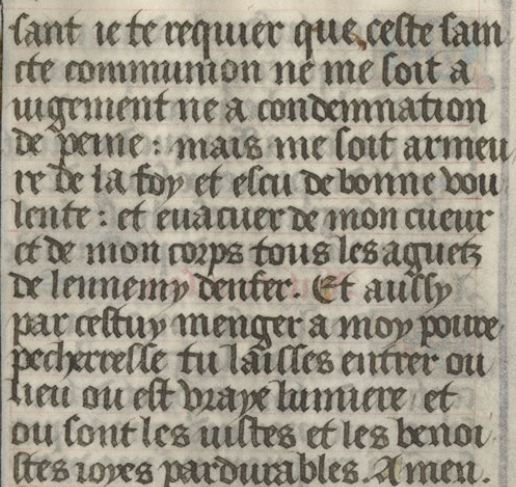 sant ie te requier que ceste sain
cte communion ne me soit a
iugement ne a condemnation
de peine : mais me soit armeu
re de la foy et escu de bonne vou
lente : et euacuer de mon cueur
et de mon corps tous les aguetz
de lennemy denfer. Et aussy
par cestuy menger a moy poure
pecherresse tu laisses entrer ou
lieu ou est vraye lumiere et
ou sont les iustes et les benoi
stes ioyes pardurables. Amen.